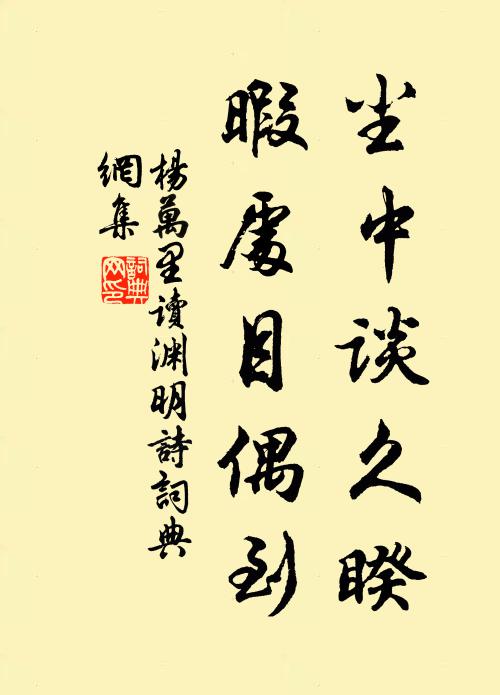 尘中谈久睽
暇處目偶到
楊萬里讀渊明詩詞典
網集
詞典網印